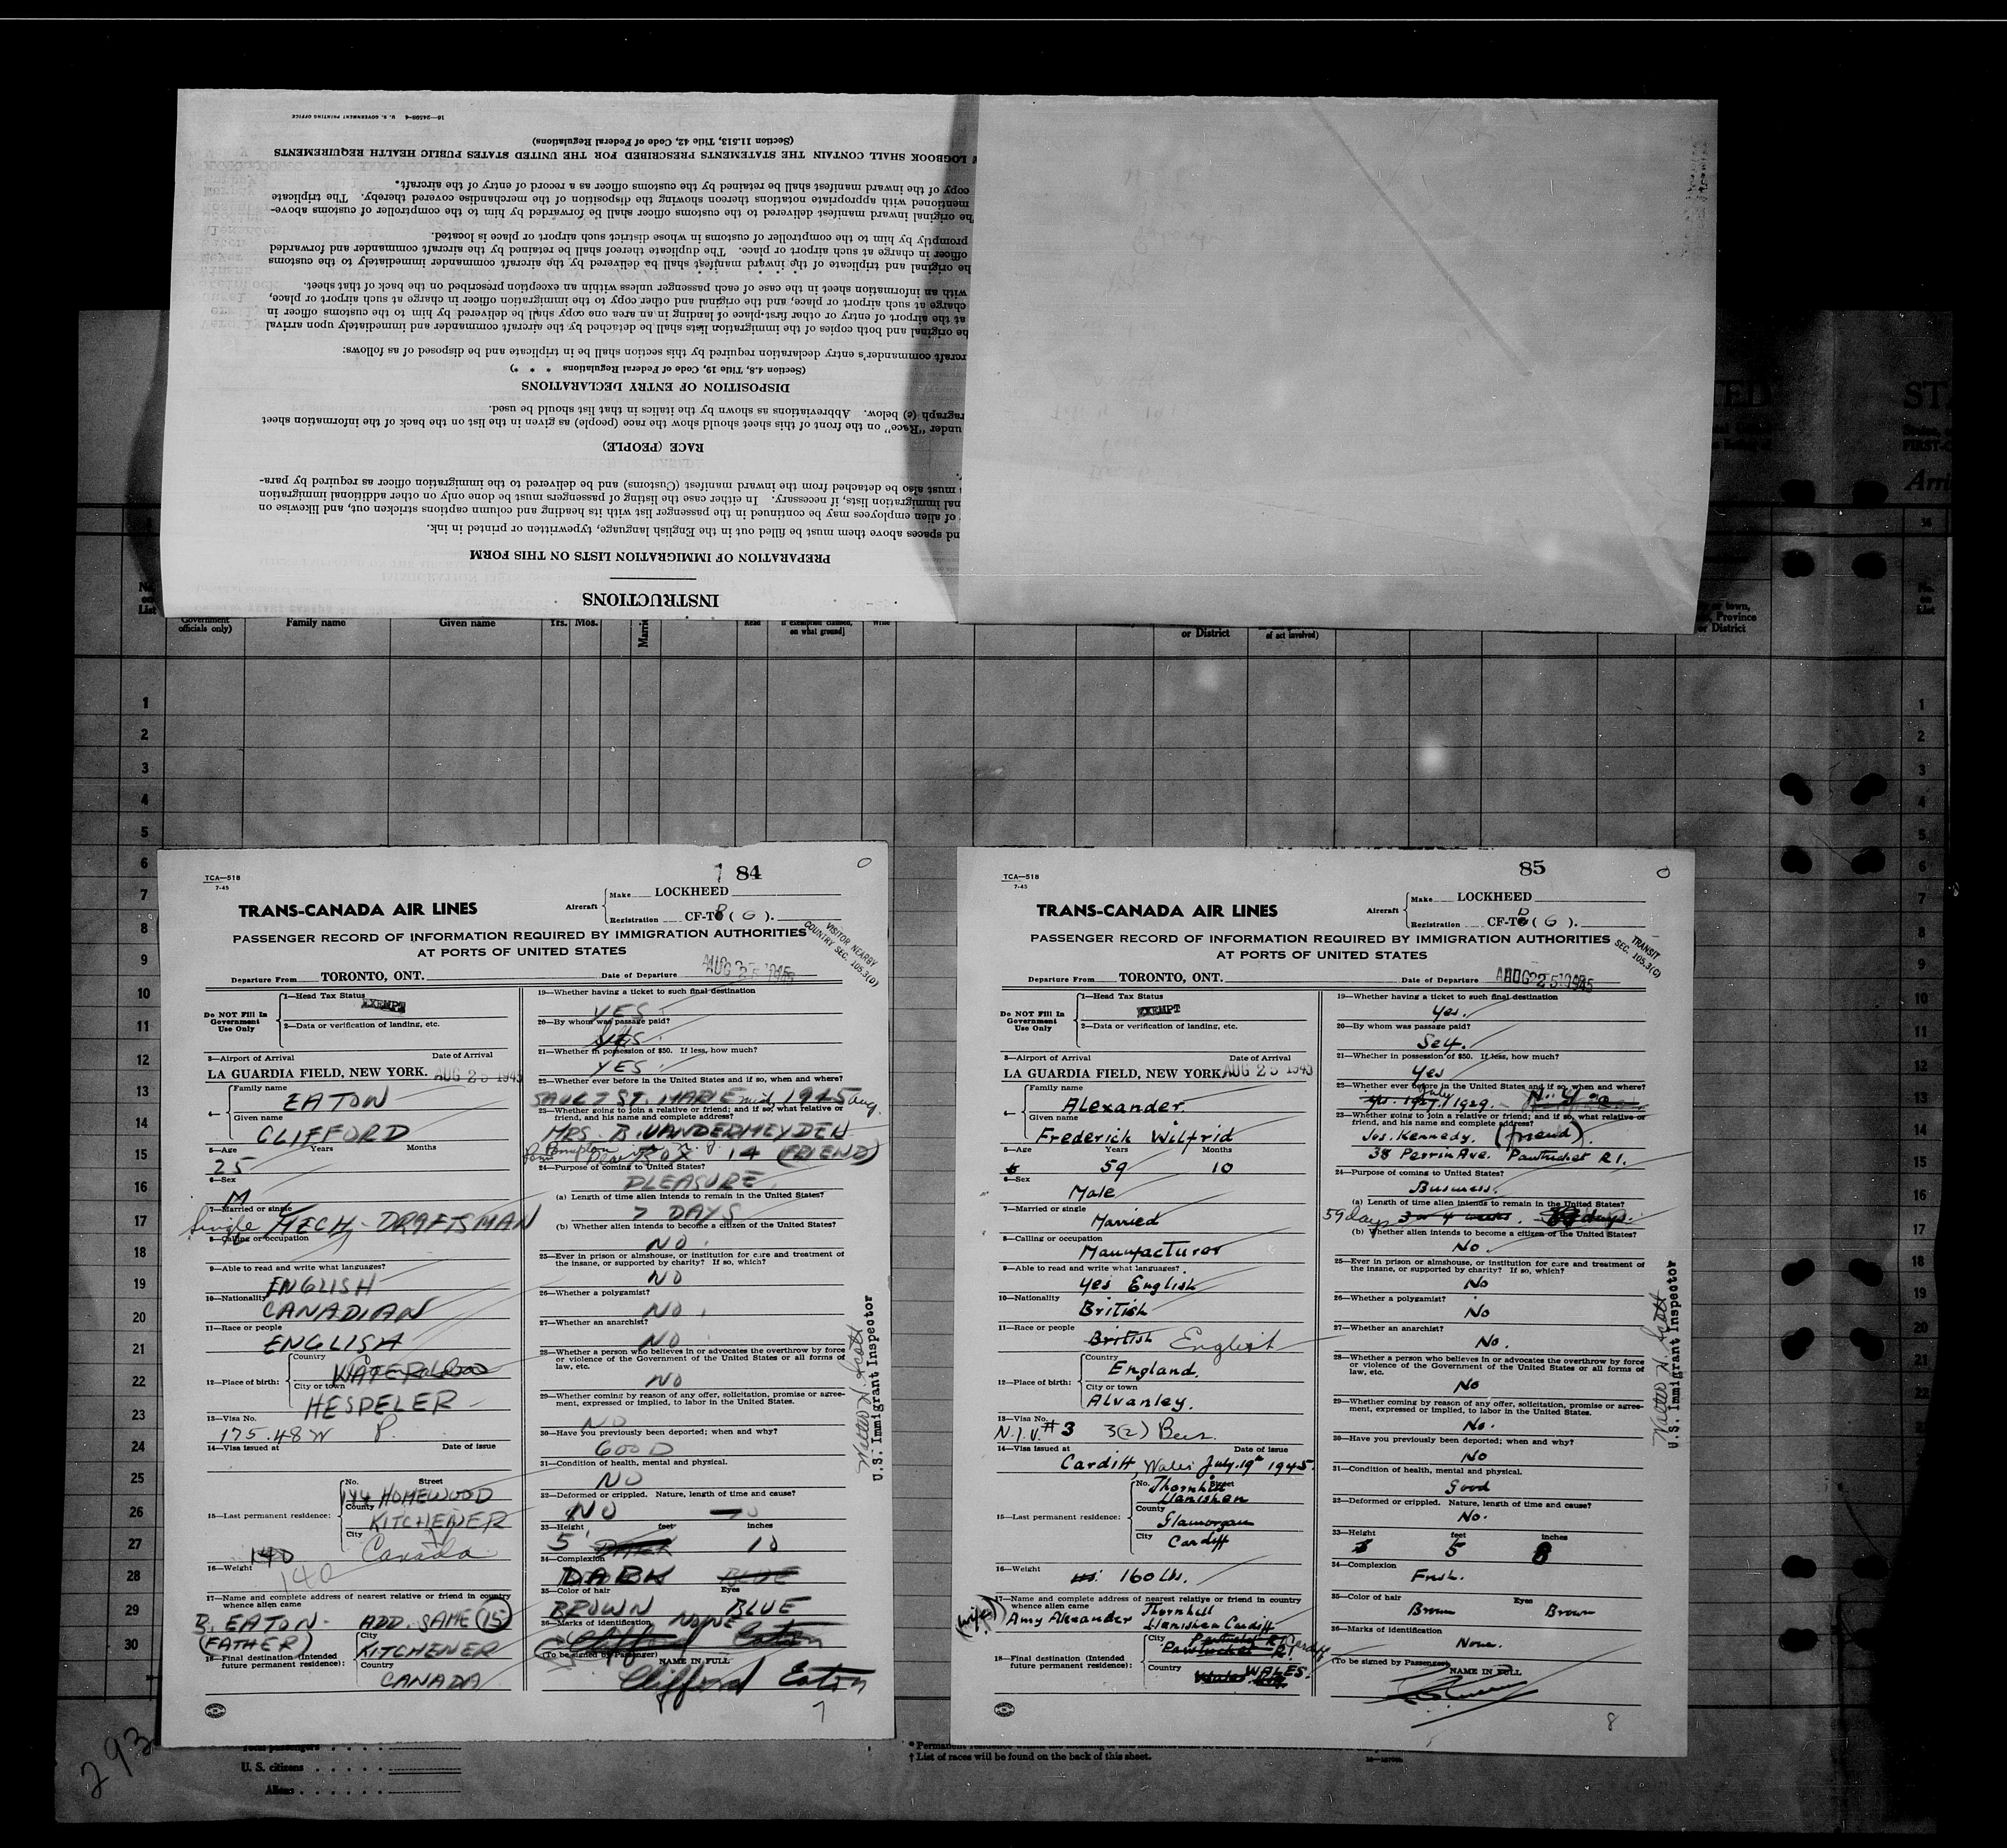 INSTRUCTIONS
PREPARATION OF IMMIGRATION LISTS ON THIS FORM
nd spaces above them must be filled out in the English language, typewritten or printed in ink.
of alien employees may be continued in the passenger list with its heading and column captions stricken out, and likewise on
nal immigration lists, if necessary. In either case the listing of passengers must be done only on other additional immigration
must also be detached from the inward manifest (Customs) and be delivered to the immigration officer as required by para-
RACE (PEOPLE)
under "Race" on the front of this sheet should show the race (people) as given in the list on the back of the information sheet
ragraph (c) below. Abbreviations as shown by the italics in that list should be used.
DISPOSITION OF ENTRY DECLARATIONS
(Section 4.8, Title 19, Code of Federal Regulations * * *)
rcraft commander's entry declaration required by this section shall be in triplicate and be disposed of as follows:
he original and both copies of the immigration lists shall be detached by the aircraft commander and immediately upon arrival
at the airport of entry or other first-place of landing in an area one copy shall be delivered by him to the customs officer in
charge at such airport or place, and the original and other copy to the immigration officer in charge at such airport or place,
with an information sheet in the case of each passenger unless within an exception prescribed on the back of that sheet.
he original and triplicate of the inward manifest shall be delivered by the aircraft commander immediately to the customs
officer in charge at such airport or place. The duplicate thereof shall be retained by the aircraft commander and forwarded
promptly by him to the comptroller of customs in whose district such airport or place is located.
The original inward manifest delivered to the customs officer shall be forwarded by him to the comptroller of customs above-
mentioned with appropriate notations thereon showing the disposition of the merchandise covered thereby. The triplicate
copy of the inward manifest shall be retained by the customs officer as a record of entry of the aircraft.
LOGBOOK SHALL CONTAIN THE STATEMENTS PRESCRIBED FOR THE UNITED STATES PUBLIC HEALTH REQUIREMENTS
(Section 11.513, Title 42, Code of Federal Regulations)
16—24598-4 U. S. GOVERNMENT PRINTING OFFICE
No. on List
Government officials only)
Family name
Given name
Yrs. Mos.
Read
on what ground]
Write
or District
of act involved)
or town, Province or District
1
2
3
4
5
6
7
8
9
10
11
12
13
14
15
16
17
18
19
20
21
22
23
24
25
26
27
28
29
30
84
TCA—518
7-45
TRANS-CANADA AIR LINES
Aircraft
Make LOCKHEED
Registration CF-T ( G ).
PASSENGER RECORD OF INFORMATION REQUIRED BY IMMIGRATION AUTHORITIES
AT PORTS OF UNITED STATES
VISITOR NEARBY
COUNTRY SEC. 105.3(D)
Departure From TORONTO, ONT. Date of Departure AUG 25 1945
Do NOT Fill In Government Use Only
1—Head Tax Status
EXEMPT
2—Data or verification of landing, etc.
3—Airport of Arrival Date of Arrival
LA GUARDIA FIELD, NEW YORK. AUG 25 1945
4— Family name
EATON
Given name
CLIFFORD
5—Age Years Months
25
6—Sex
M
7—Married or single
Single MECH. DRAFTSMAN
8—Calling or occupation
9—Able to read and write what languages?
ENGLISH
10—Nationality
CANADIAN
11—Race or people
ENGLISH
12—Place of birth: Country
WATERLOO
City or town
HESPELER
13—Visa No.
175.48 W P.
14—Visa issued at Date of issue
15—Last permanent residence: No. Street
144 HOMEWOOD
County
KITCHENER
City
Canada
16—Weight
140
140
17—Name and complete address of nearest relative or friend in country whence alien came
B. EATON - ADD. SAME (15)
(FATHER)
18—Final destination (Intended future permanent residence):
City
KITCHENER
Country
CANADA
19—Whether having a ticket to such final destination
YES
20—By whom was passage paid?
21—Whether in possession of $50. If less, how much?
YES
22—Whether ever before in the United States and if so, when and where?
SAULT ST. MARIE mid 1945 aug.
23—Whether going to join a relative or friend; and if so, what relative or friend, and his name and complete address?
MRS. B. VANDERMEYDEN
Pompton Plains N. J. BOX 14 (FRIEND)
24—Purpose of coming to United States?
PLEASURE
(a) Length of time alien intends to remain in the United States?
7 DAYS
(b) Whether alien intends to become a citizen of the United States?
NO
25—Ever in prison or almshouse, or institution for care and treatment of the insane, or supported by charity? If so, which?
NO
26—Whether a polygamist?
NO
27—Whether an anarchist?
NO
28—Whether a person who believes in or advocates the overthrow by force or violence of the Government of the United States or all forms of law, etc.
NO
29—Whether coming by reason of any offer, solicitation, promise or agreement, expressed or implied, to labor in the United States.
NO
30—Have you previously been deported; when and why?
GOOD
31—Condition of health, mental and physical.
NO
32—Deformed or crippled. Nature, length of time and cause?
NO
33—Height feet inches
5 10
34—Complexion
DARK BLUE
35—Color of hair Eyes
BROWN BLUE
36—Marks of identification NONE
Clifford Eaton
(To be signed by Passenger) NAME IN FULL
Clifford Eaton
7
Walter H. Scott
U.S. Immigrant Inspector
85
TCA—518
7-45
TRANS-CANADA AIR LINES
Aircraft
Make LOCKHEED
Registration CF-T ( G ).
PASSENGER RECORD OF INFORMATION REQUIRED BY IMMIGRATION AUTHORITIES
AT PORTS OF UNITED STATES
TRANSIT
SEC. 105.3(C)
Departure From TORONTO, ONT. Date of Departure AUG 25 1945
Do NOT Fill In Government Use Only
1—Head Tax Status
EXEMPT
2—Data or verification of landing, etc.
3—Airport of Arrival Date of Arrival
LA GUARDIA FIELD, NEW YORK. AUG 25 1945
4— Family name
Alexander.
Given name
Frederick Wilfrid
5—Age Years Months
59 10
6—Sex
Male
7—Married or single
Married
8—Calling or occupation
Manufacturer
9—Able to read and write what languages?
Yes English
10—Nationality
British
11—Race or people
British English
12—Place of birth: Country
England.
City or town
Alvanley.
13—Visa No.
N.I.V. #3 3(2) Bus.
14—Visa issued at Date of issue
Cardiff, Wales July. 19th 1945.
15—Last permanent residence: No. Street
Thornhill
Llanishen
County
Glamorgan
City
Cardiff
16—Weight
160 Lbs.
17—Name and complete address of nearest relative or friend in country whence alien came
(wife) Amy Alexander Thornhill
Llanishen Cardiff
18—Final destination (Intended future permanent residence):
City Pawtucket R.I. Cardiff
Pawtucket R.I.
Country
Wales WALES.
19—Whether having a ticket to such final destination
Yes.
20—By whom was passage paid?
Self.
21—Whether in possession of $50. If less, how much?
Yes
22—Whether ever before in the United States and if so, when and where?
July 1929. N. Y.
23—Whether going to join a relative or friend; and if so, what relative or friend, and his name and complete address?
Jos. Kennedy. (friend).
38 Perrin Ave. Pawtucket R I.
24—Purpose of coming to United States?
Business.
(a) Length of time alien intends to remain in the United States?
59 days 3 or 4 weeks. days.
(b) Whether alien intends to become a citizen of the United States?
No.
25—Ever in prison or almshouse, or institution for care and treatment of the insane, or supported by charity? If so, which?
No
26—Whether a polygamist?
No
27—Whether an anarchist?
No.
28—Whether a person who believes in or advocates the overthrow by force or violence of the Government of the United States or all forms of law, etc.
No
29—Whether coming by reason of any offer, solicitation, promise or agreement, expressed or implied, to labor in the United States.
No.
30—Have you previously been deported; when and why?
No
31—Condition of health, mental and physical.
Good
32—Deformed or crippled. Nature, length of time and cause?
No.
33—Height feet inches
5 8
34—Complexion
Fresh.
35—Color of hair Eyes
Brown Brown
36—Marks of identification
None.
(To be signed by Passenger) NAME IN FULL
8
Walter H. Scott
U.S. Immigrant Inspector
293
Total passengers
U.S. citizens
Aliens
† List of races will be found on the back of this sheet.